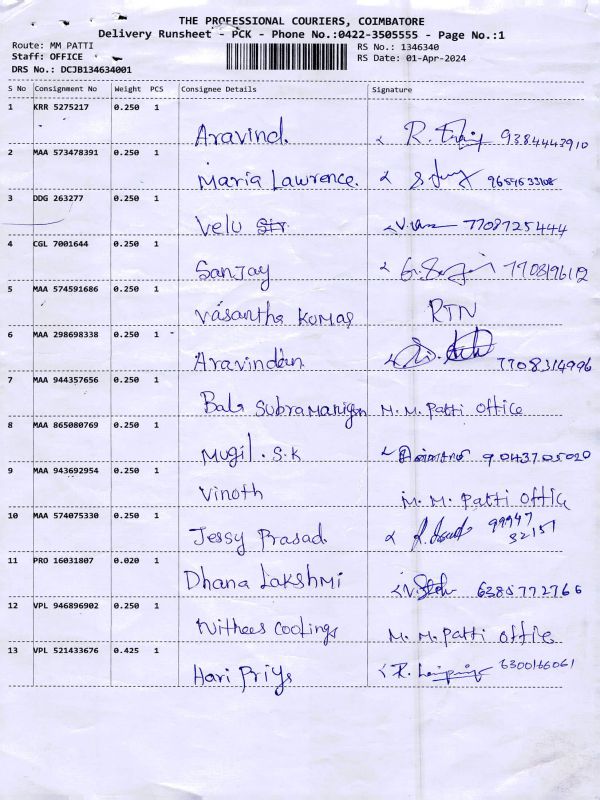 THE PROFESSIONAL COURIERS, COIMBATORE
Delivery Runsheet - PCK - Phone No.:0422-3505555 - Page No.:1
Route: MM PATTI RS No.: 1346340
Staff: OFFICE RS Date: 01-Apr-2024
DRS No.: DCJB134634001
S No Consignment No Weight PCS Consignee Details Signature
1 KRR 5275217 0.250 1
Aravind. R. 9384443910
2 MAA 573478391 0.250 1
Maria Lawrence.
3 DDG 263277 0.250 1
Velu Str 7708725444
4 CGL 7001644 0.250 1
Sanjay
5 MAA 574591686 0.250 1
Vasantha Kumar RTN
6 MAA 298698338 0.250 1
Aravindan 7708314996
7 MAA 944357656 0.250 1
Bala Subramanian M. M. Patti Office
8 MAA 865080769 0.250 1
Mugil . S.K 9043705020
9 MAA 943692954 0.250 1
Vinoth M. M. Patti Office
10 MAA 574075330 0.250 1
Jessy Prasad 99947
32157
11 PRO 16031807 0.020 1
Dhana Lakshmi 6385772766
12 VPL 946896902 0.250 1
Nithees Coolings M. M. Patti Office
13 VPL 521433676 0.425 1
Hari Priya R. 6300166061